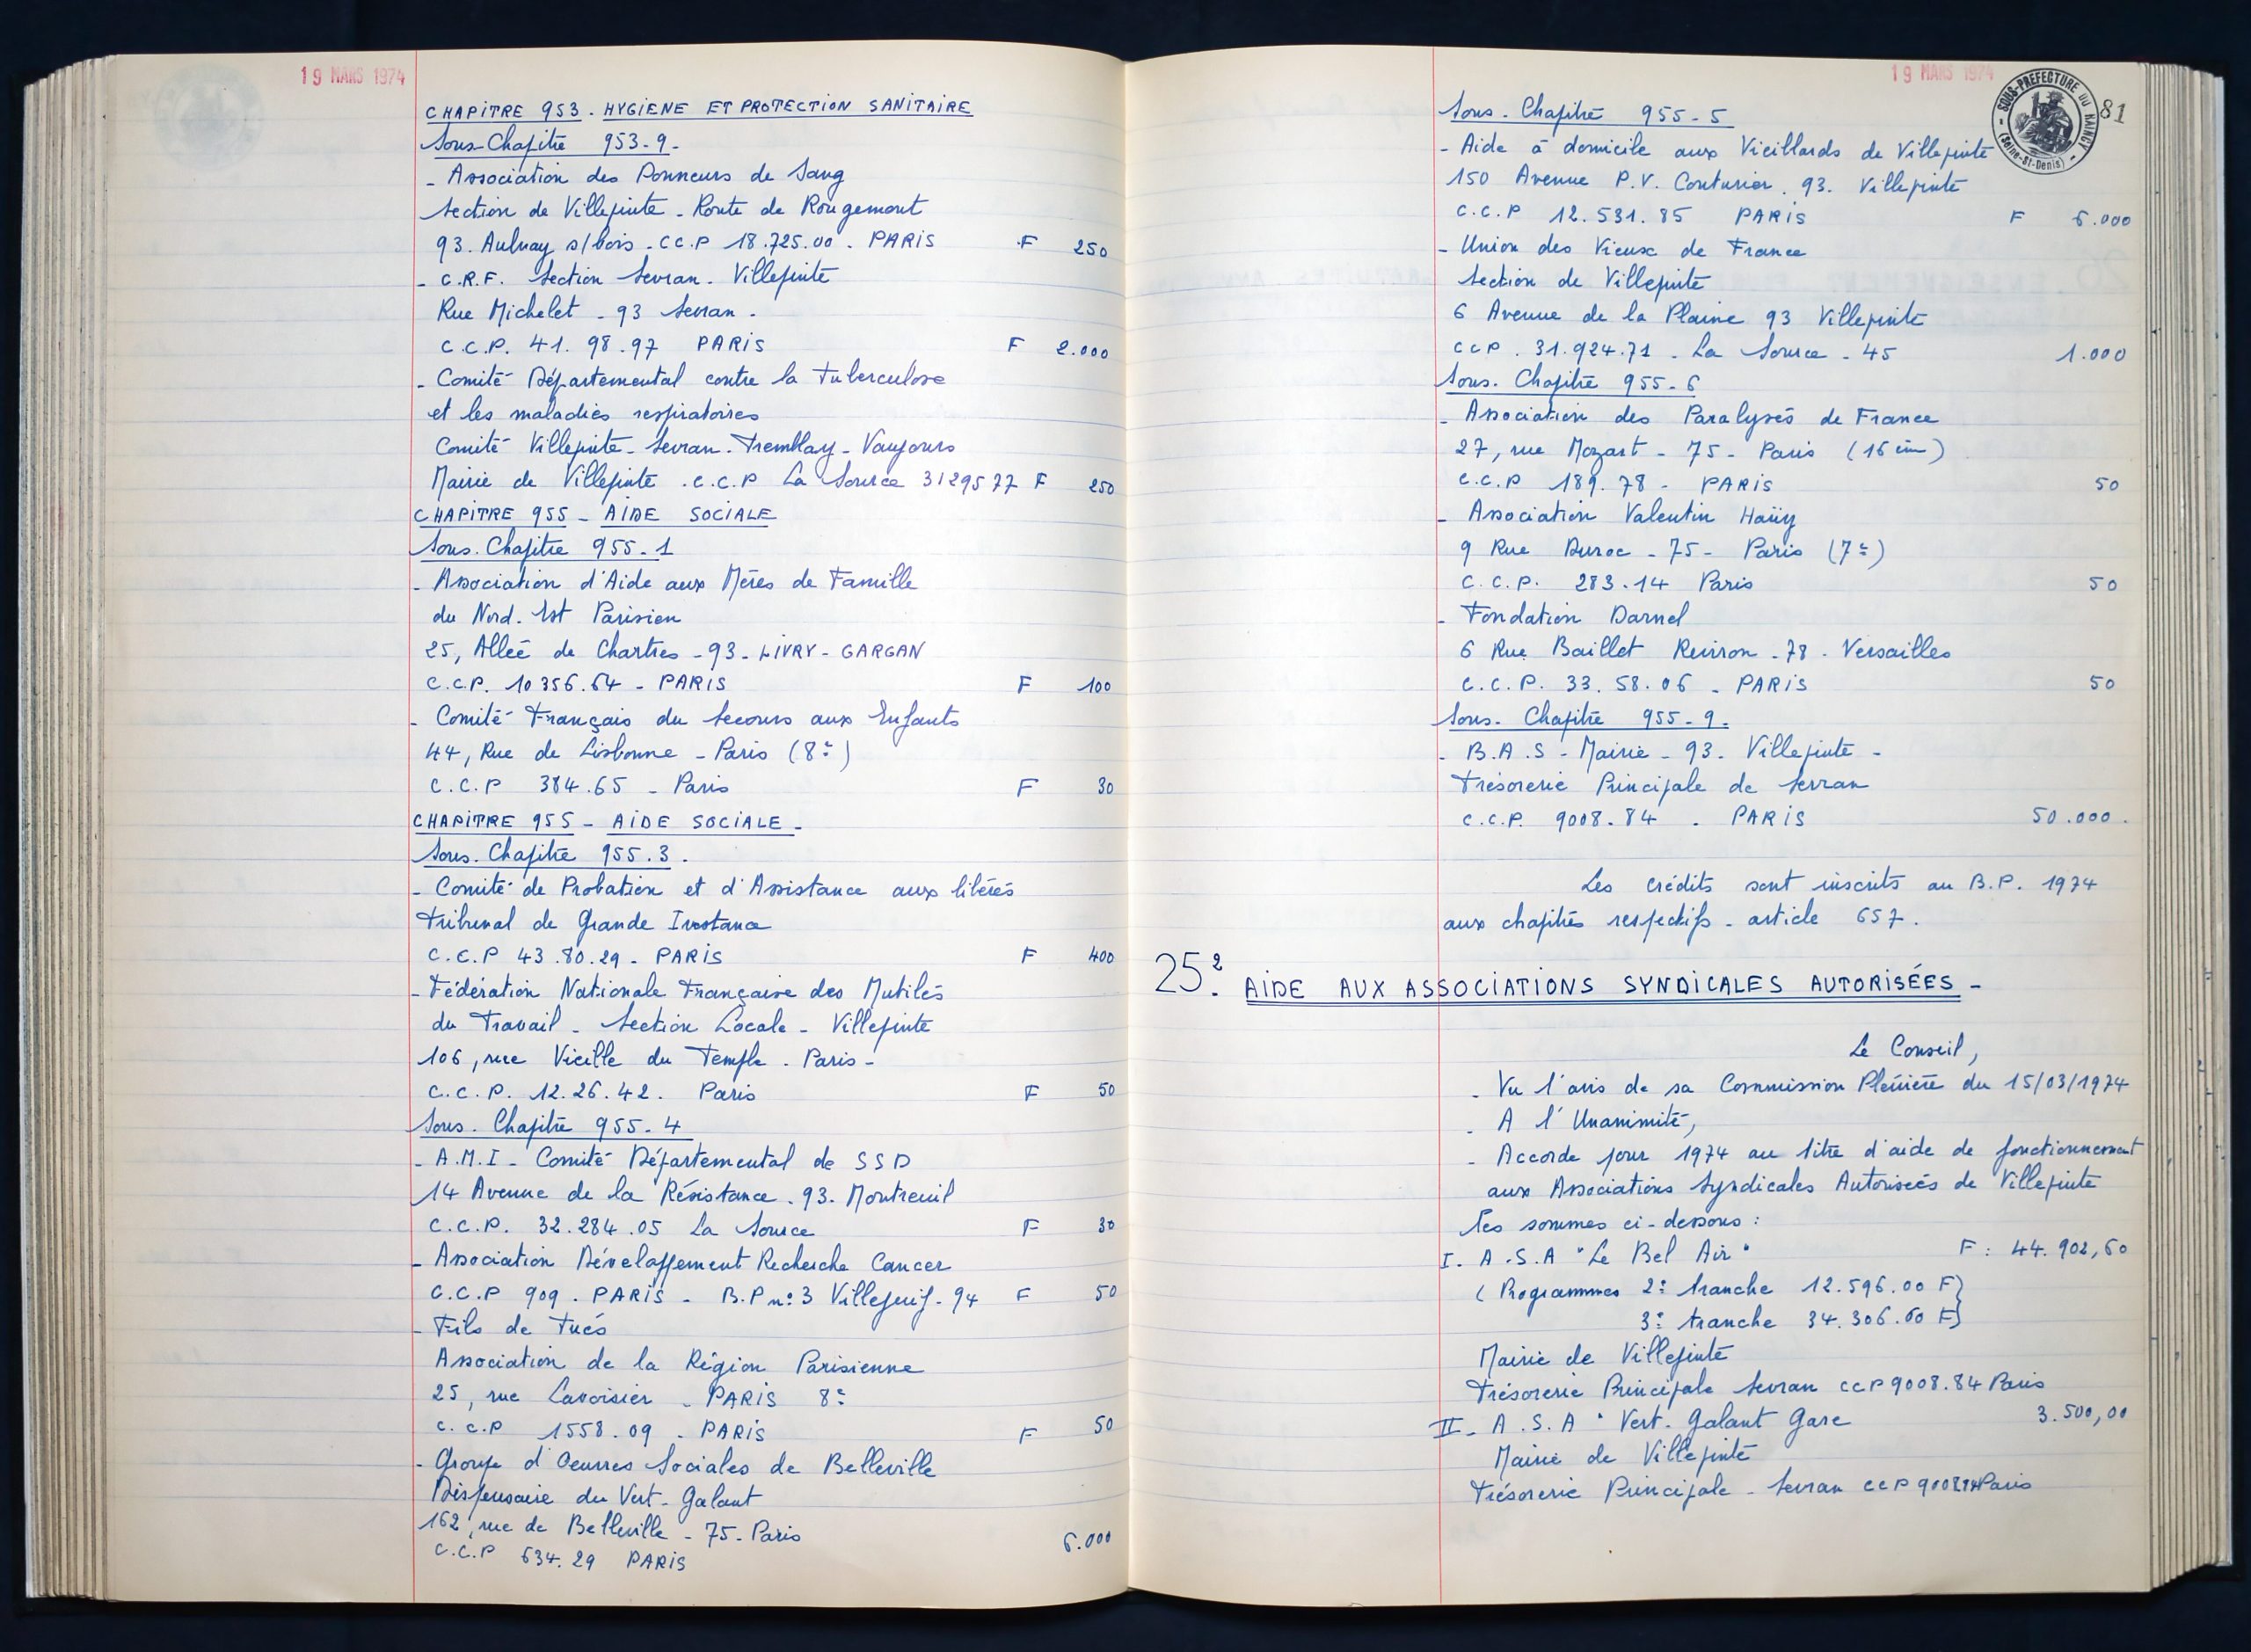 19 MARS 1974
CHAPITRE 953. HYGIENE ET PROTECTION SANITAIRE
Sous-Chapitre 953-9-
- Association des Donneurs de Sang
Section de Villepinte - Route de Rougemont
93. Aulnay s/bois - CC.P 18.725.00 - PARIS F 250
- C.R.F. Section Sevran - Villepinte
Rue Michelet - 93 Sevran -
C.C.P. 41. 98.97 PARIS F 2.000
- Comité Départemental contre la tuberculose
et les maladies respiratoires
Comité Villepinte - Sevran - Tremblay - Vaujours
Mairie de Villepinte . C.C.P La Source 3129577 F 250
CHAPITRE 955 - AIDE SOCIALE
Sous. Chapitre 955-1
- Association d'Aide aux Mères de Famille
du Nord. Est Parisien
25, Allée de Chartres - 93 - LIVRY - GARGAN
C.C.P. 10356.64 - PARIS F 100
- Comité Français du Secours aux Enfants
44, Rue de Lisbonne - Paris (8e)
C.C.P 384.65 - Paris F 30
CHAPITRE 955 - AIDE SOCIALE -
Sous. Chapitre 955.3.
- Comité de Probation et d'Assistance aux libérés
Tribunal de Grande Instance
C.C.P 43.80.29 - PARIS F 400
- Fédération Nationale Française des Mutilés
du Travail - Section Locale - Villepinte
106, rue Vieille du Temple - Paris -
C.C.P. 12.26.42. Paris F 50
Sous. Chapitre 955-4
- A.M.I - Comité Départemental de SSD
14 Avenue de la Résistance . 93. Montreuil
C.C.P. 32.284.05 La Source F 30
- Association Développement Recherche Cancer
C.C.P 909 . PARIS - B.P n° 3 Villejuif - 94 F 50
- Fils de Tués
Association de la Région Parisienne
25, rue Lavoisier - PARIS 8e
C.C.P 1558.09 - PARIS F 50
- Groupe d'Oeuvres Sociales de Belleville
Dispensaire du Vert-Galant
162, rue de Belleville - 75 - Paris 6.000
C.C.P 634.29 PARIS
19 MARS 1974
SOUS-PREFECTURE DU RAINCY
(Seine-St-Denis)
81
Sous - Chapitre 955-5
- Aide à domicile aux Vieillards de Villepinte
150 Avenue P.V. Couturier. 93. Villepinte
C.C.P 12.531.85 PARIS F 6.000
- Union des Vieux de France
Section de Villepinte
6 Avenue de la Plaine 93 Villepinte
CCP . 31.924.71 - La Source - 45 1.000
Sous. Chapitre 955-6
- Association des Paralysés de France
27, rue Mozart - 75 - Paris (16 èm)
C.C.P 189.78 - PARIS 50
- Association Valentin Haüy
9 Rue Duroc - 75 - Paris (7e)
C.C.P. 283.14 Paris 50
- Fondation Darnel
6 Rue Baillet Reviron - 78 - Versailles
C.C.P. 33.58.06 - PARIS 50
Sous - Chapitre 955-9.
- B.A.S - Mairie - 93. Villepinte -
Trésorerie Principale de Sevran
C.C.P. 9008.84 - PARIS 50.000.
Les crédits sont inscrits au B.P. 1974
aux chapitres respectifs - article 657.
25e. AIDE AUX ASSOCIATIONS SYNDICALES AUTORISÉES -
Le Conseil,
- Vu l'avis de sa Commission Plénière du 15/03/1974
- A l'Unanimité,
- Accorde pour 1974 au titre d'aide de fonctionnement
aux Associations Syndicales Autorisées de Villepinte
les sommes ci-dessous :
I. A.S.A "Le Bel Air" F : 44.902,60
( Programmes 2e tranche 12.596.00 F)
3e tranche 34.306.60 F)
Mairie de Villepinte
Trésorerie Principale Sevran CCP 9008.84 Paris
II. A.S.A " Vert-Galant Gare 3.500,00
Mairie de Villepinte
Trésorerie Principale - Sevran CCP 900884 Paris